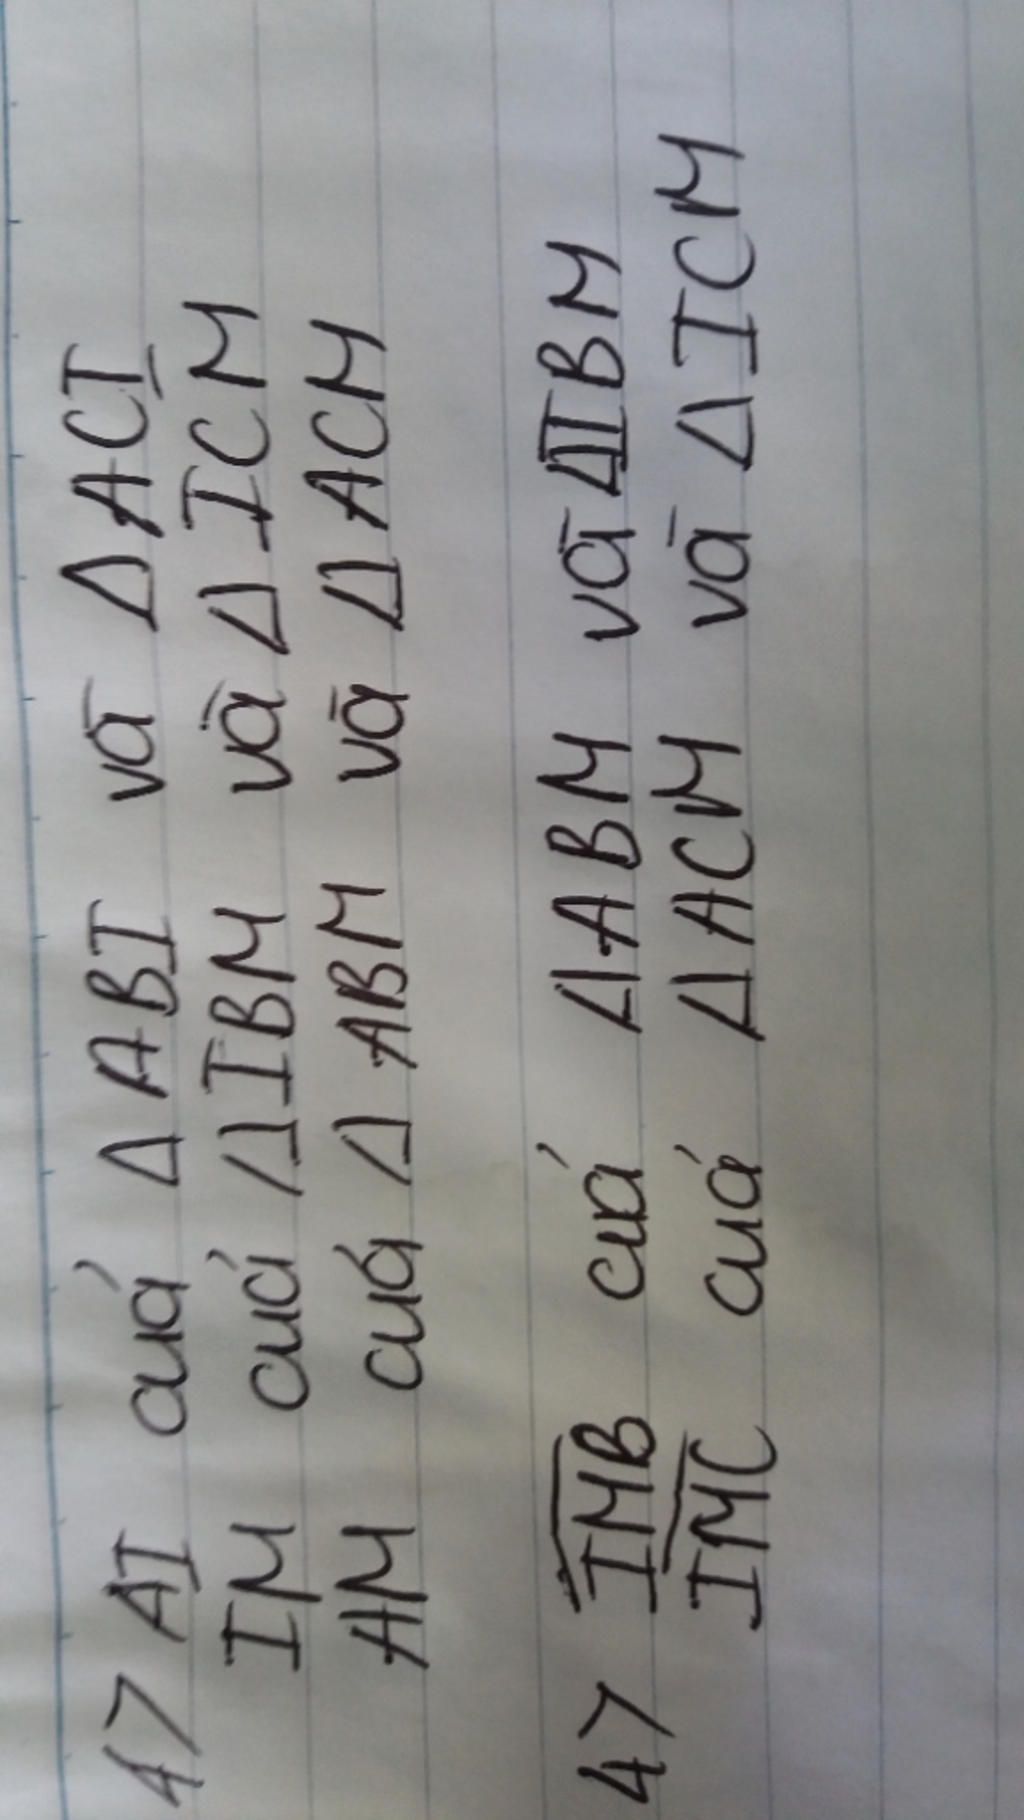 4> AI cuả Δ ABI và Δ ACI
IM cuả Δ IBM và Δ ICM
AM cuả Δ ABM và Δ ACM
4> IMB cuả Δ ABM và Δ IBM
IMC cuả Δ ACM và Δ ICM